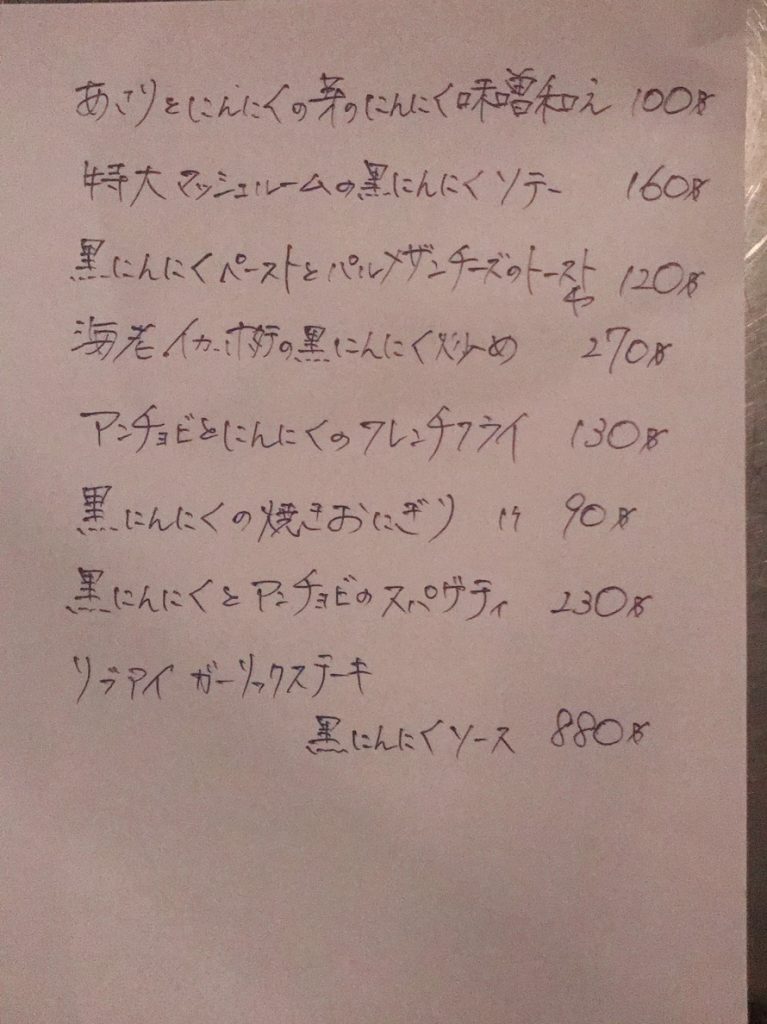 あさりとにんにくの芽のにんにく味噌和え 100฿
特大マッシュルームの黒にんにくソテー 160฿
黒にんにくペーストとパルメザンチーズのトースト 120฿
海老イカホタテの黒にんにく炒め 270฿
アンチョビとにんにくのフレンチフライ 130฿
黒にんにくの焼きおにぎり 1ケ 90฿
黒にんにくとアンチョビのスパゲティ 230฿
リブアイ ガーリックステーキ
黒にんにくソース 880฿